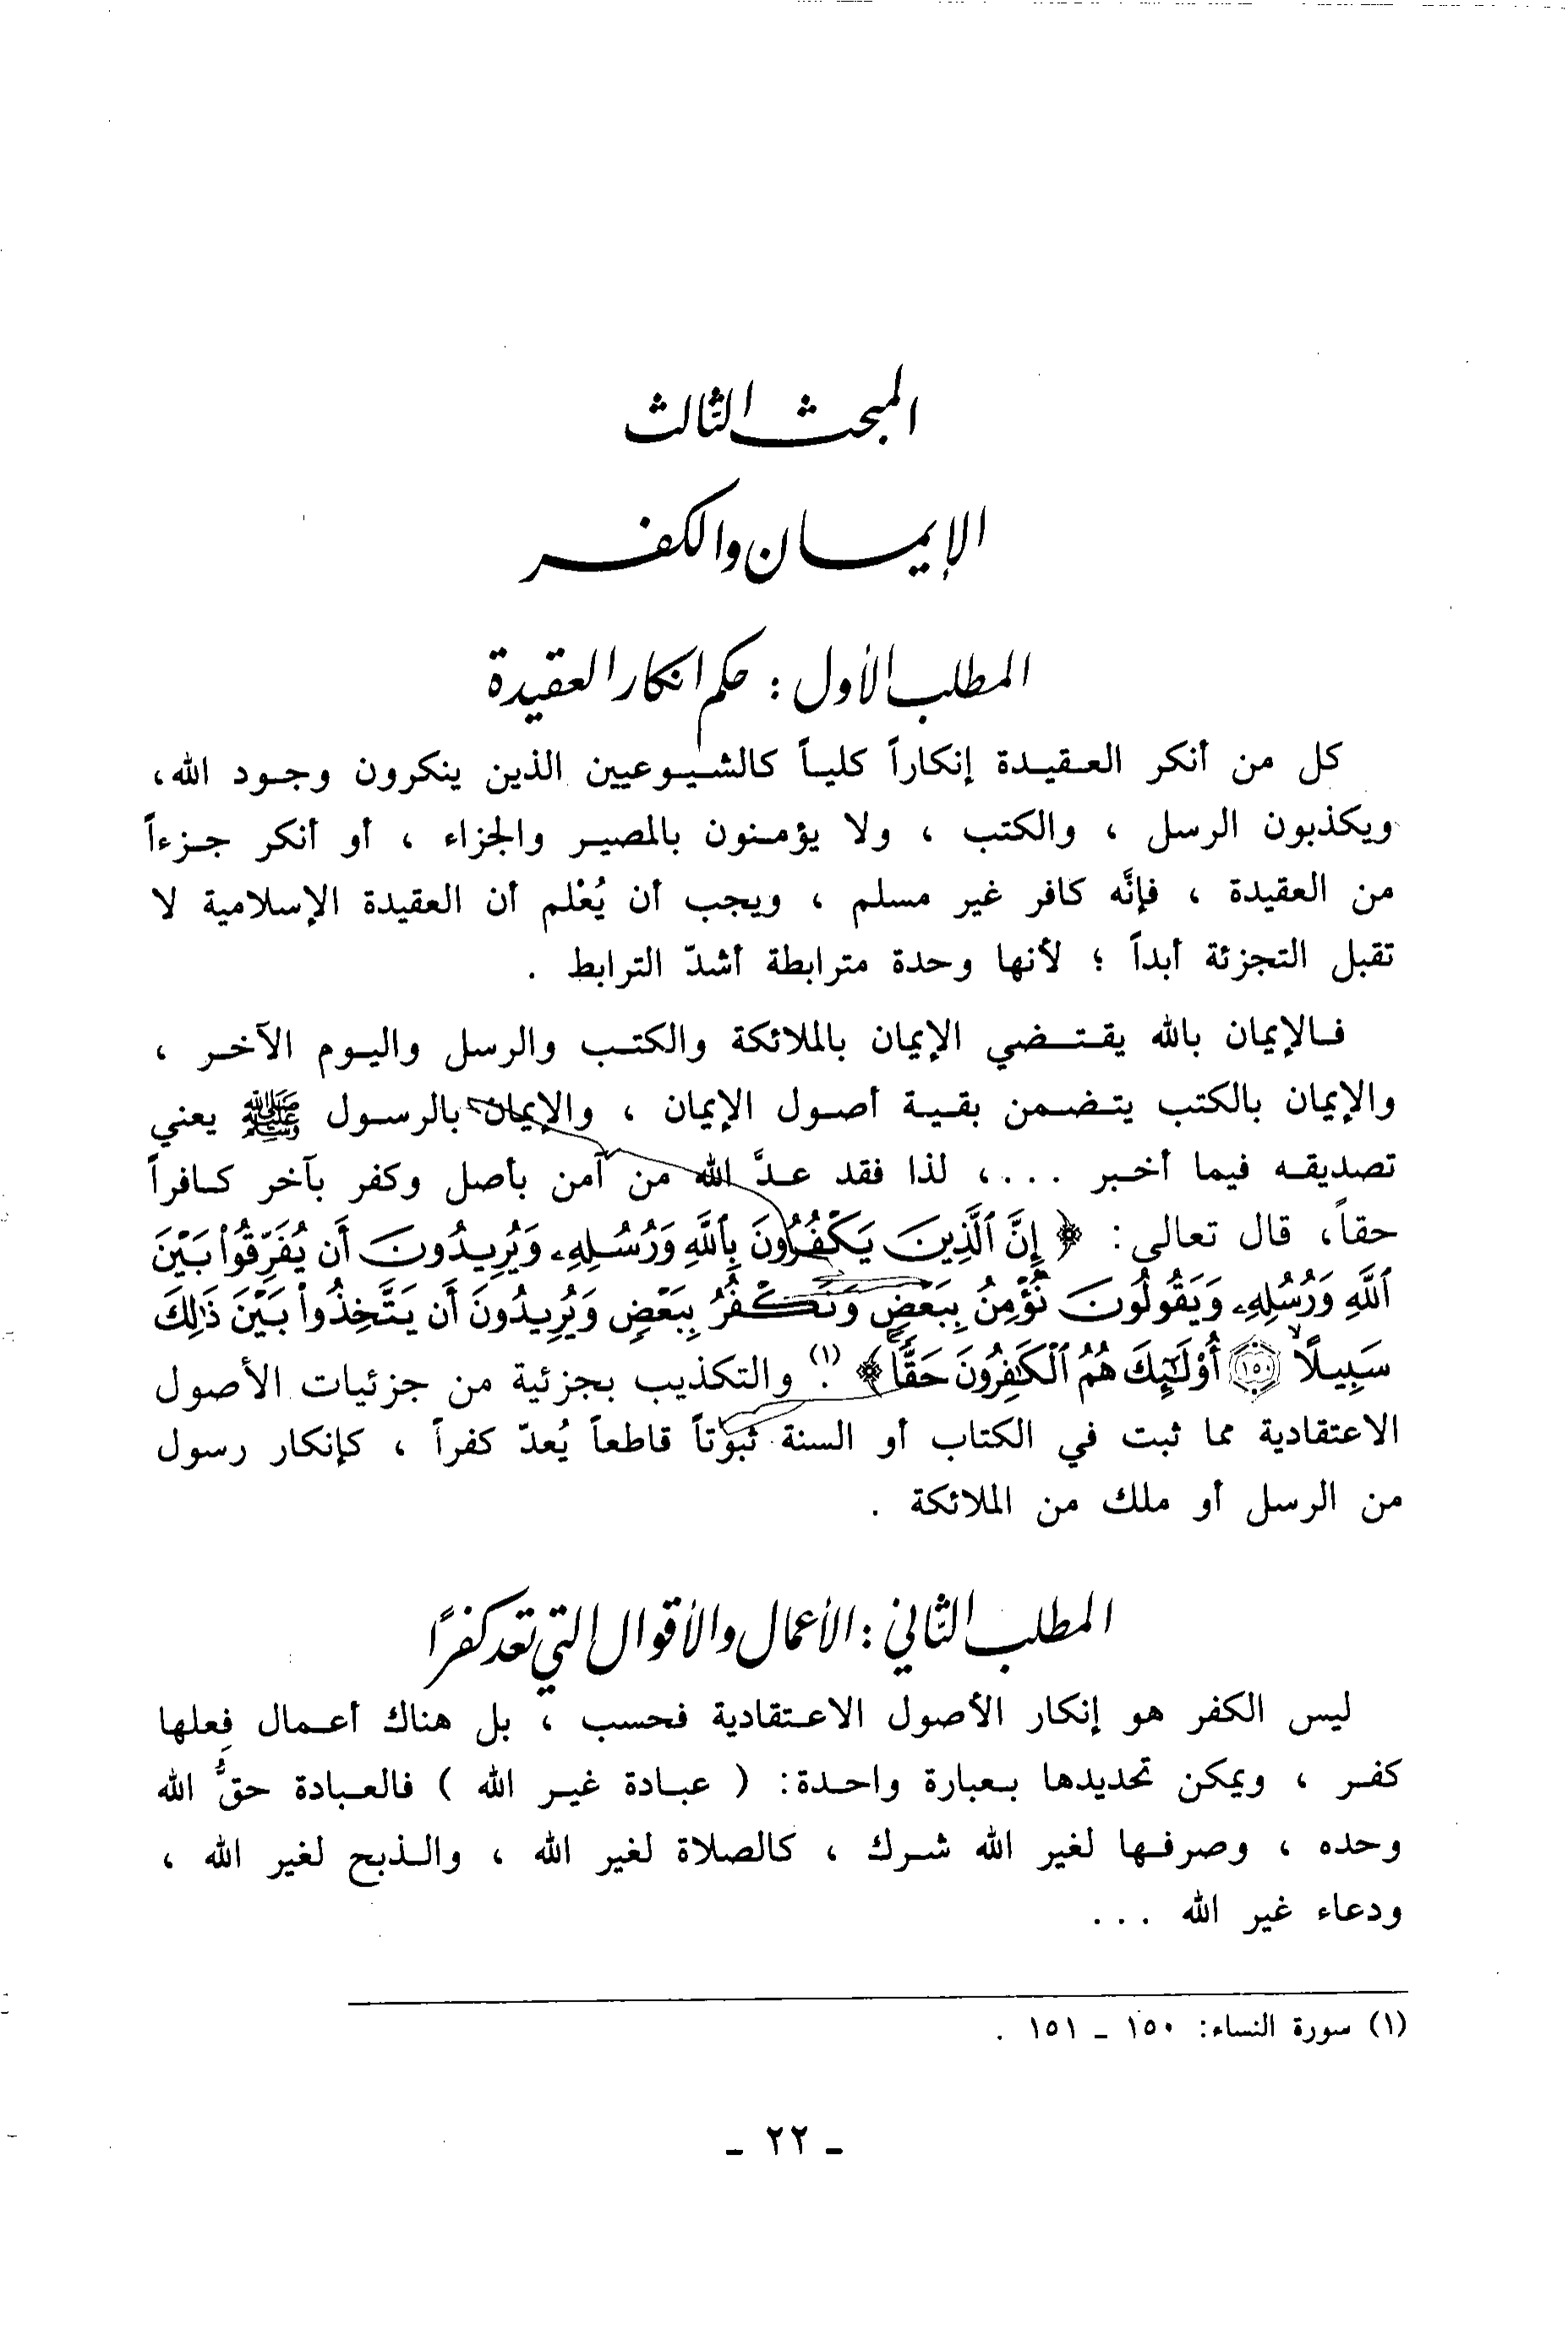 المبحث الثالث
الإيمان والكفر
المطلب الأول : حكم انكار العقيدة
كل من أنكر العقيدة إنكاراً كلياً كالشيوعيين الذين ينكرون وجود الله،
ويكذبون الرسل ، والكتب ، ولا يؤمنون بالمصير والجزاء ، أو أنكر جزءاً
من العقيدة ، فإنَّه كافر غير مسلم ، ويجب أن يُعْلم أن العقيدة الإسلامية لا
تقبل التجزئة أبداً ؛ لأنها وحدة مترابطة أشدّ الترابط .
فالإيمان بالله يقتضي الإيمان بالملائكة والكتب والرسل واليوم الآخر ،
والإيمان بالكتب يتضمن بقية أصول الإيمان ، والإيمان بالرسول ﷺ يعني
تصديقه فيما أخبر ....، لذا فقد عدَّ الله من آمن بأصل وكفر بآخر كافراً
حقاً، قال تعالى : ﴿ إِنَّ ٱلَّذِينَ يَكْفُرُونَ بِٱللَّهِ وَرُسُلِهِۦ وَيُرِيدُونَ أَن يُفَرِّقُوا۟ بَيْنَ
ٱللَّهِ وَرُسُلِهِۦ وَيَقُولُونَ نُؤْمِنُ بِبَعْضٍ وَنَكْفُرُ بِبَعْضٍ وَيُرِيدُونَ أَن يَتَّخِذُوا۟ بَيْنَ ذَٰلِكَ
سَبِيلًا ۝١٥٠ أُو۟لَٰٓئِكَ هُمُ ٱلْكَٰفِرُونَ حَقًّا ﴾ (١). والتكذيب بجزئية من جزئيات الأصول
الاعتقادية مما ثبت في الكتاب أو السنة ثبوتاً قاطعاً يُعدّ كفراً ، كإنكار رسول
من الرسل أو ملك من الملائكة .
المطلب الثاني : الأعمال والأقوال التي تعد كفرًا
ليس الكفر هو إنكار الأصول الاعتقادية فحسب ، بل هناك أعمال فِعلها
كفر ، ويمكن تحديدها بعبارة واحدة: ( عبادة غير الله ) فالعبادة حقُّ الله
وحده ، وصرفها لغير الله شرك ، كالصلاة لغير الله ، والذبح لغير الله ،
ودعاء غير الله ...
(١) سورة النساء: ١٥٠ ـ ١٥١ .
ـ ٢٢ ـ